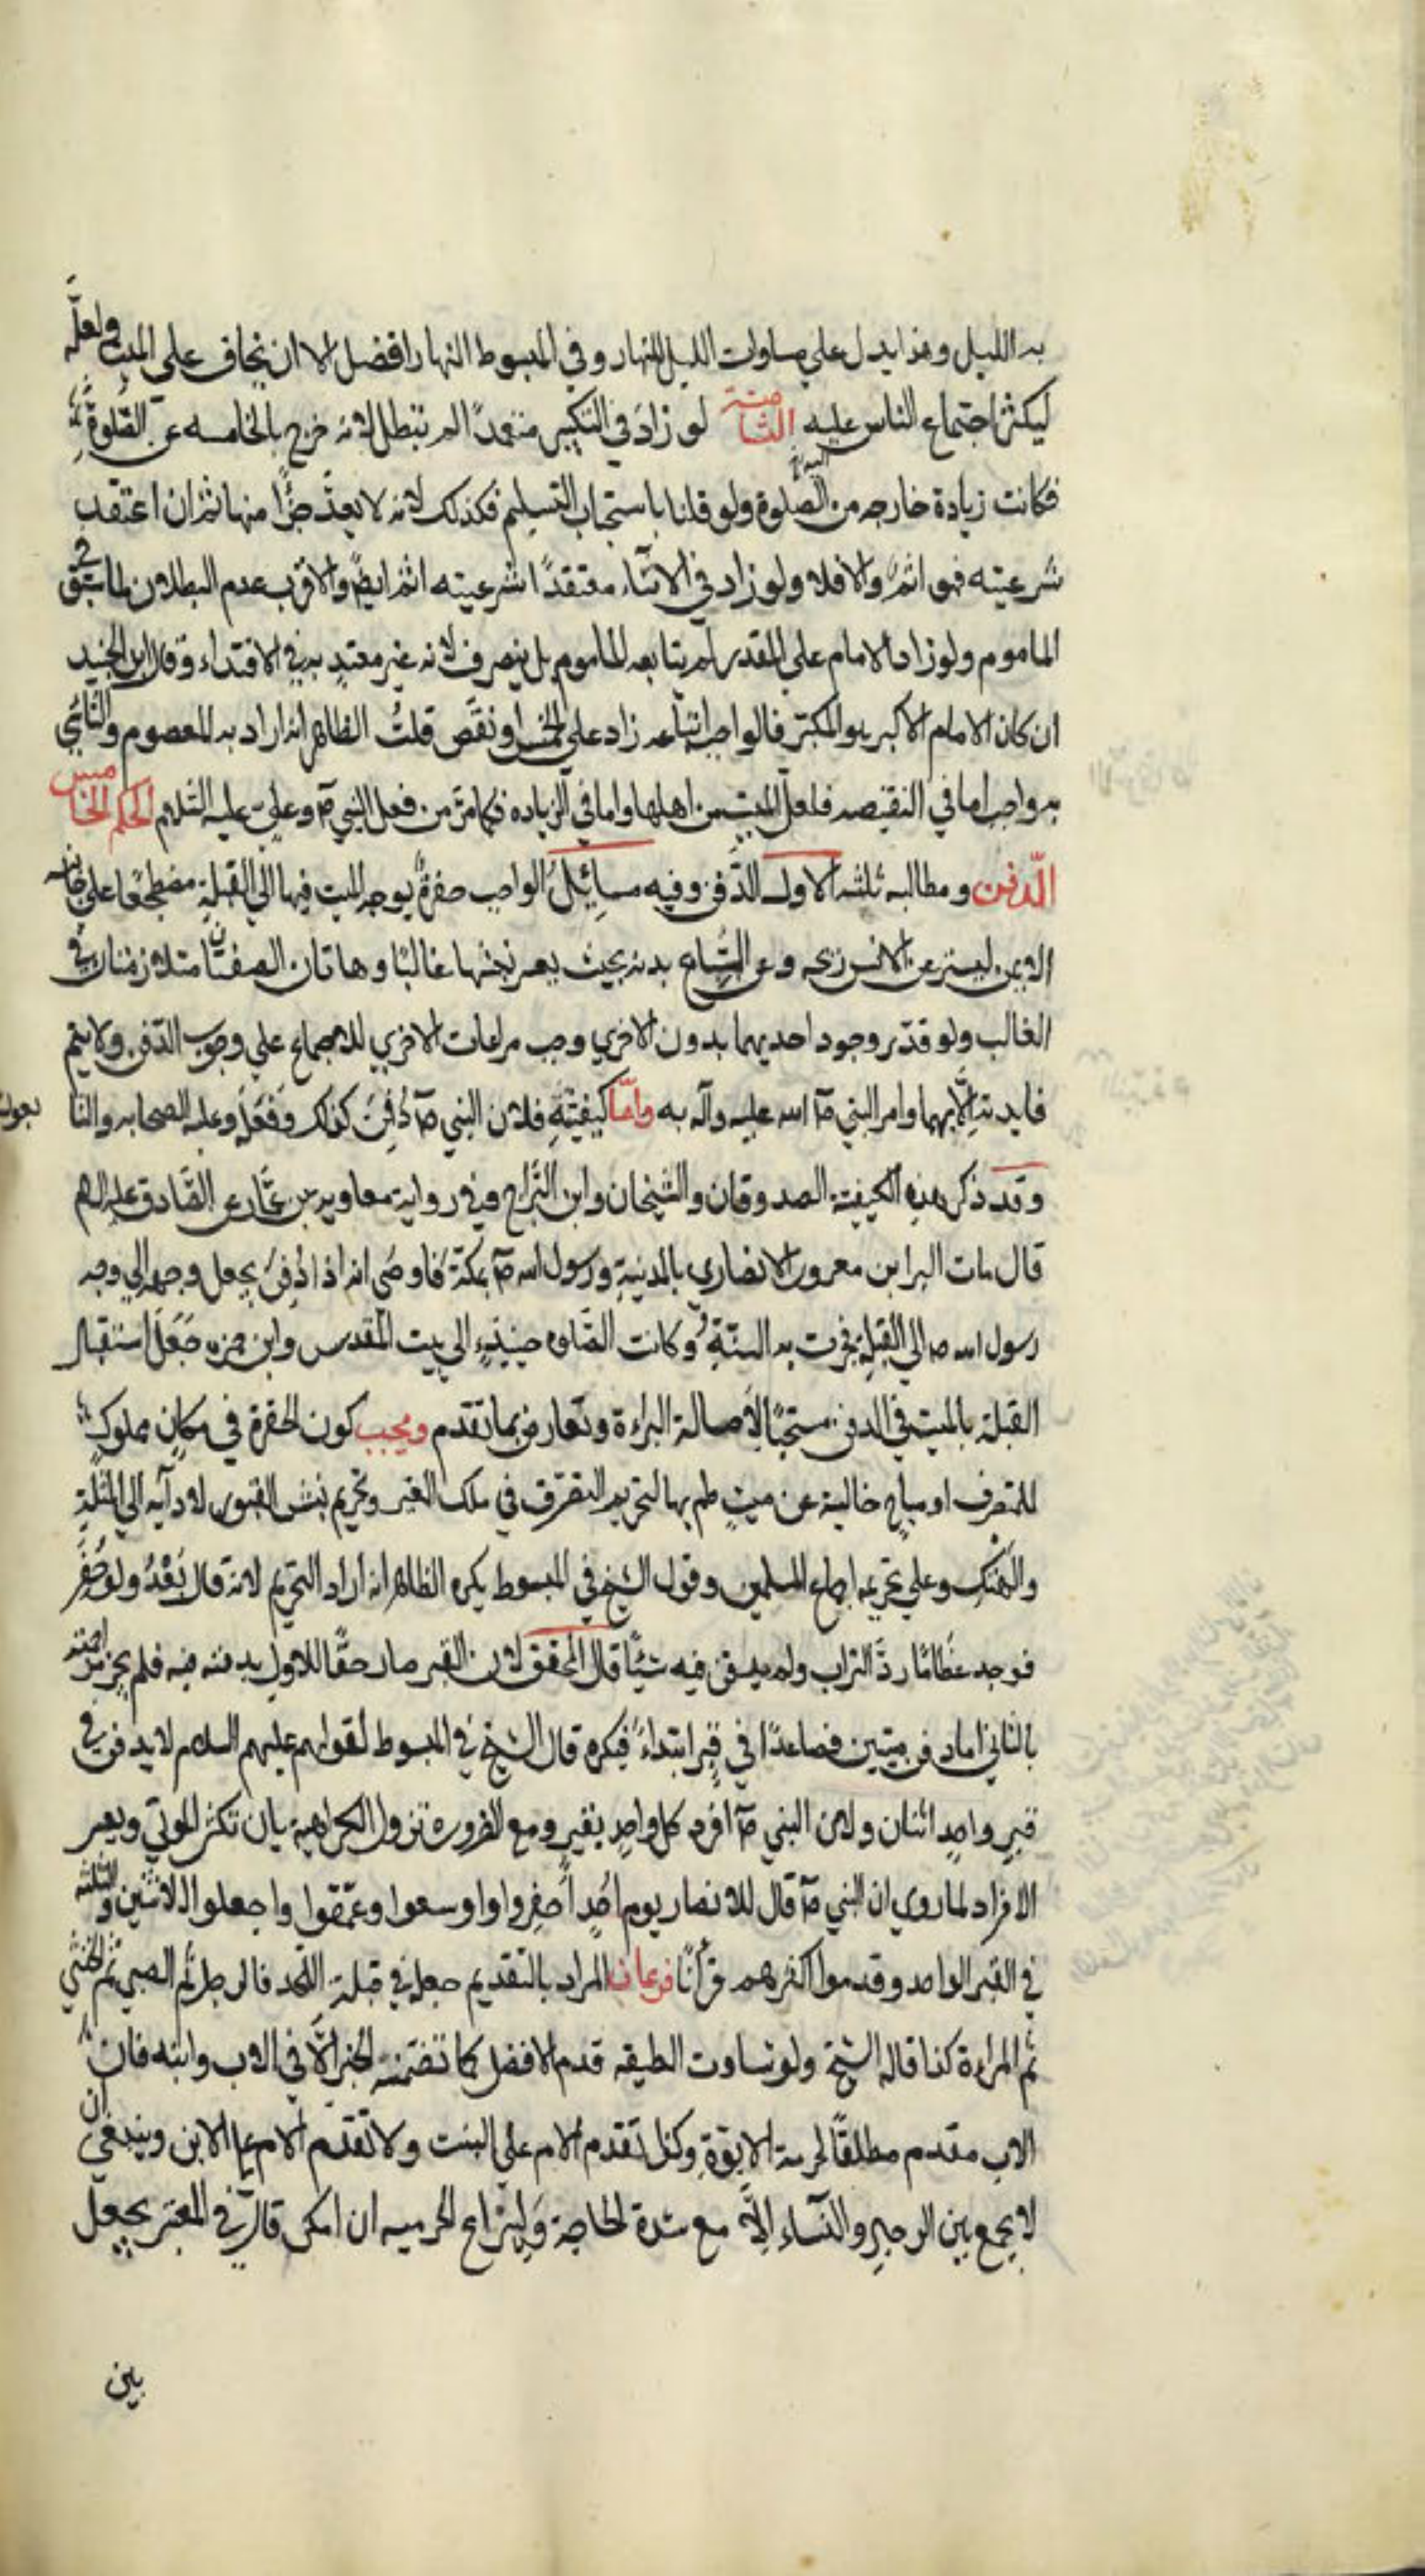 به الليل وهذا يدل علي مساوات الليل للنهار وفي المبسوط النهار افضل الا ان يخاف علي الميت ولعله
ليكثر اجتماع الناس عليه الثامنة لو زاد في التكبير متعمدًا لم تبطل لانه خرج بالخامسه عن الصلوة
فكانت زيادة خارجه من الصلوة ولو قلنا باستحباب التسليم فكذلك لانه لا يعدّ جزًا منها ثم ان اعتقد
شرعيته فهو اثمٌ والا فلا ولو زاد في الاثناء معتقدًا شرعيته اثم ايضًا والاقرب عدم البطلان لما سبق في
الماموم ولو زاد الامام علي المقدر لم يتابعه الماموم بل ينصرف لانه غير معتدٍ به في الاقتداء وقال ابن الجنيد
ان كان الامام الاكبر هو المكبّر فالواجب اتباعه زاد علي الخمس او نقص قلتُ الظاهر انه اراد به المعصوم والتأسّي
به واجب اما في النقيصه فلعل الميت من اهلها واما في الزياده فكما مرّ من فعل النبي ص وعلي عليه السلام الحكم الخامس
الدّفن ومطالبه ثلثه الاول الدّفن وفيه مسائل الواجب حفرةٌ يوجه الميت فيها الي القبلة مضطجعًا علي جانبه
الايمن ليستر عن الانس ريحه وعن السّباع بدنه بحيث يعسر نبشها غالبًا وهاتان الصفتان متلازمتان في
الغالب ولو قدّر وجود احديهما بدون الاخري وجب مراعات الاخري للاجماع علي وجوب الدّفن ولا يتم
فايدته الّا بهما وامر النبي ص الله عليه وآله به وامّا كيفيّته فلان النبي ص دُفِنَ كذلك وفَعَلَه وعليه الصحابه والتا
بعون
وقد ذكر هذه الكيفيّة الصدوقان والشيخان وابن البرّاج وفي رواية معاوية بن عمّار عن الصّادق عليه السلم
قال مات البرا بن معرور الانصاري بالمدينةِ ورسول الله ص بمكّةَ فاوصي انه اذا دُفِنَ يجعل وجهه الي وجه
رسول الله ص الي القبلة فجرت به السنّةُ وكانت الصّلوة حينئذٍ الي بيت المقدس وابن حمزه جَعَلَ استقبال
القبلة بالميت في الدفن مستحبًّا لاصالة البراءة وتعارض بما تقدم ويجب كون الحفرة في مكانٍ مملوكٍ
للمتصرف او مباحٍ خالية عن ميتٍ طم بها لتحريم التصرّف في ملك الغير وتحريم نبش القبور لادآيه الي المثلةِ
والهتك وعلي تحريمه اجماع المسلمين وقول الشيخ في المبسوط يكره الظاهر انه اراد التحريم لانه قال بَعْدُ ولو حَفَرَ
فوجد عظامًا ردّ التراب ولم يدفن فيه شيئًا قال المحقق لان القبر صار حقًّا للاول بدفنه فيه فلم يجز مزاحمته
بالثاني اما دفن ميتين فصاعدًا في قبرٍ ابتداءً فيكره قال الشيخ في المبسوط لقولهم عليهم السلام لا يدفن في
قبرٍ واحدٍ اثنان ولان النبي ص افرد كل واحدٍ بقبرٍ ومع الضرورة تزول الكراهية بان تكثر الموتي ويعسر
الافراد لما روي ان النبي ص قال للانصار يوم اُحُدٍ احفروا واوسعوا وعمّقوا واجعلوا الاثنين والثلثه
في القبر الواحد وقدموا اكثرهم قرآنًا فرعان المراد بالتقديم جعله في قبلة اللّحد فالرجل ثم الصبي ثمّ الخنثي
ثم المراءة كذا قاله الشيخ ولو تساوت الطبقه قدم الافضل كما تضمنه الخبر الّا في الاب وابنه فان
الاب مقدم مطلقًا لحرمة الابوّةِ وكذا تقدم الام علي البنت ولا تقدم الام علي الابن وينبغي ان
لا يجمع بين الرجال والنّساء الّا مع شدة الحاجة ويراع المحرميه ان امكن قال في المعتبر يجعل
بين